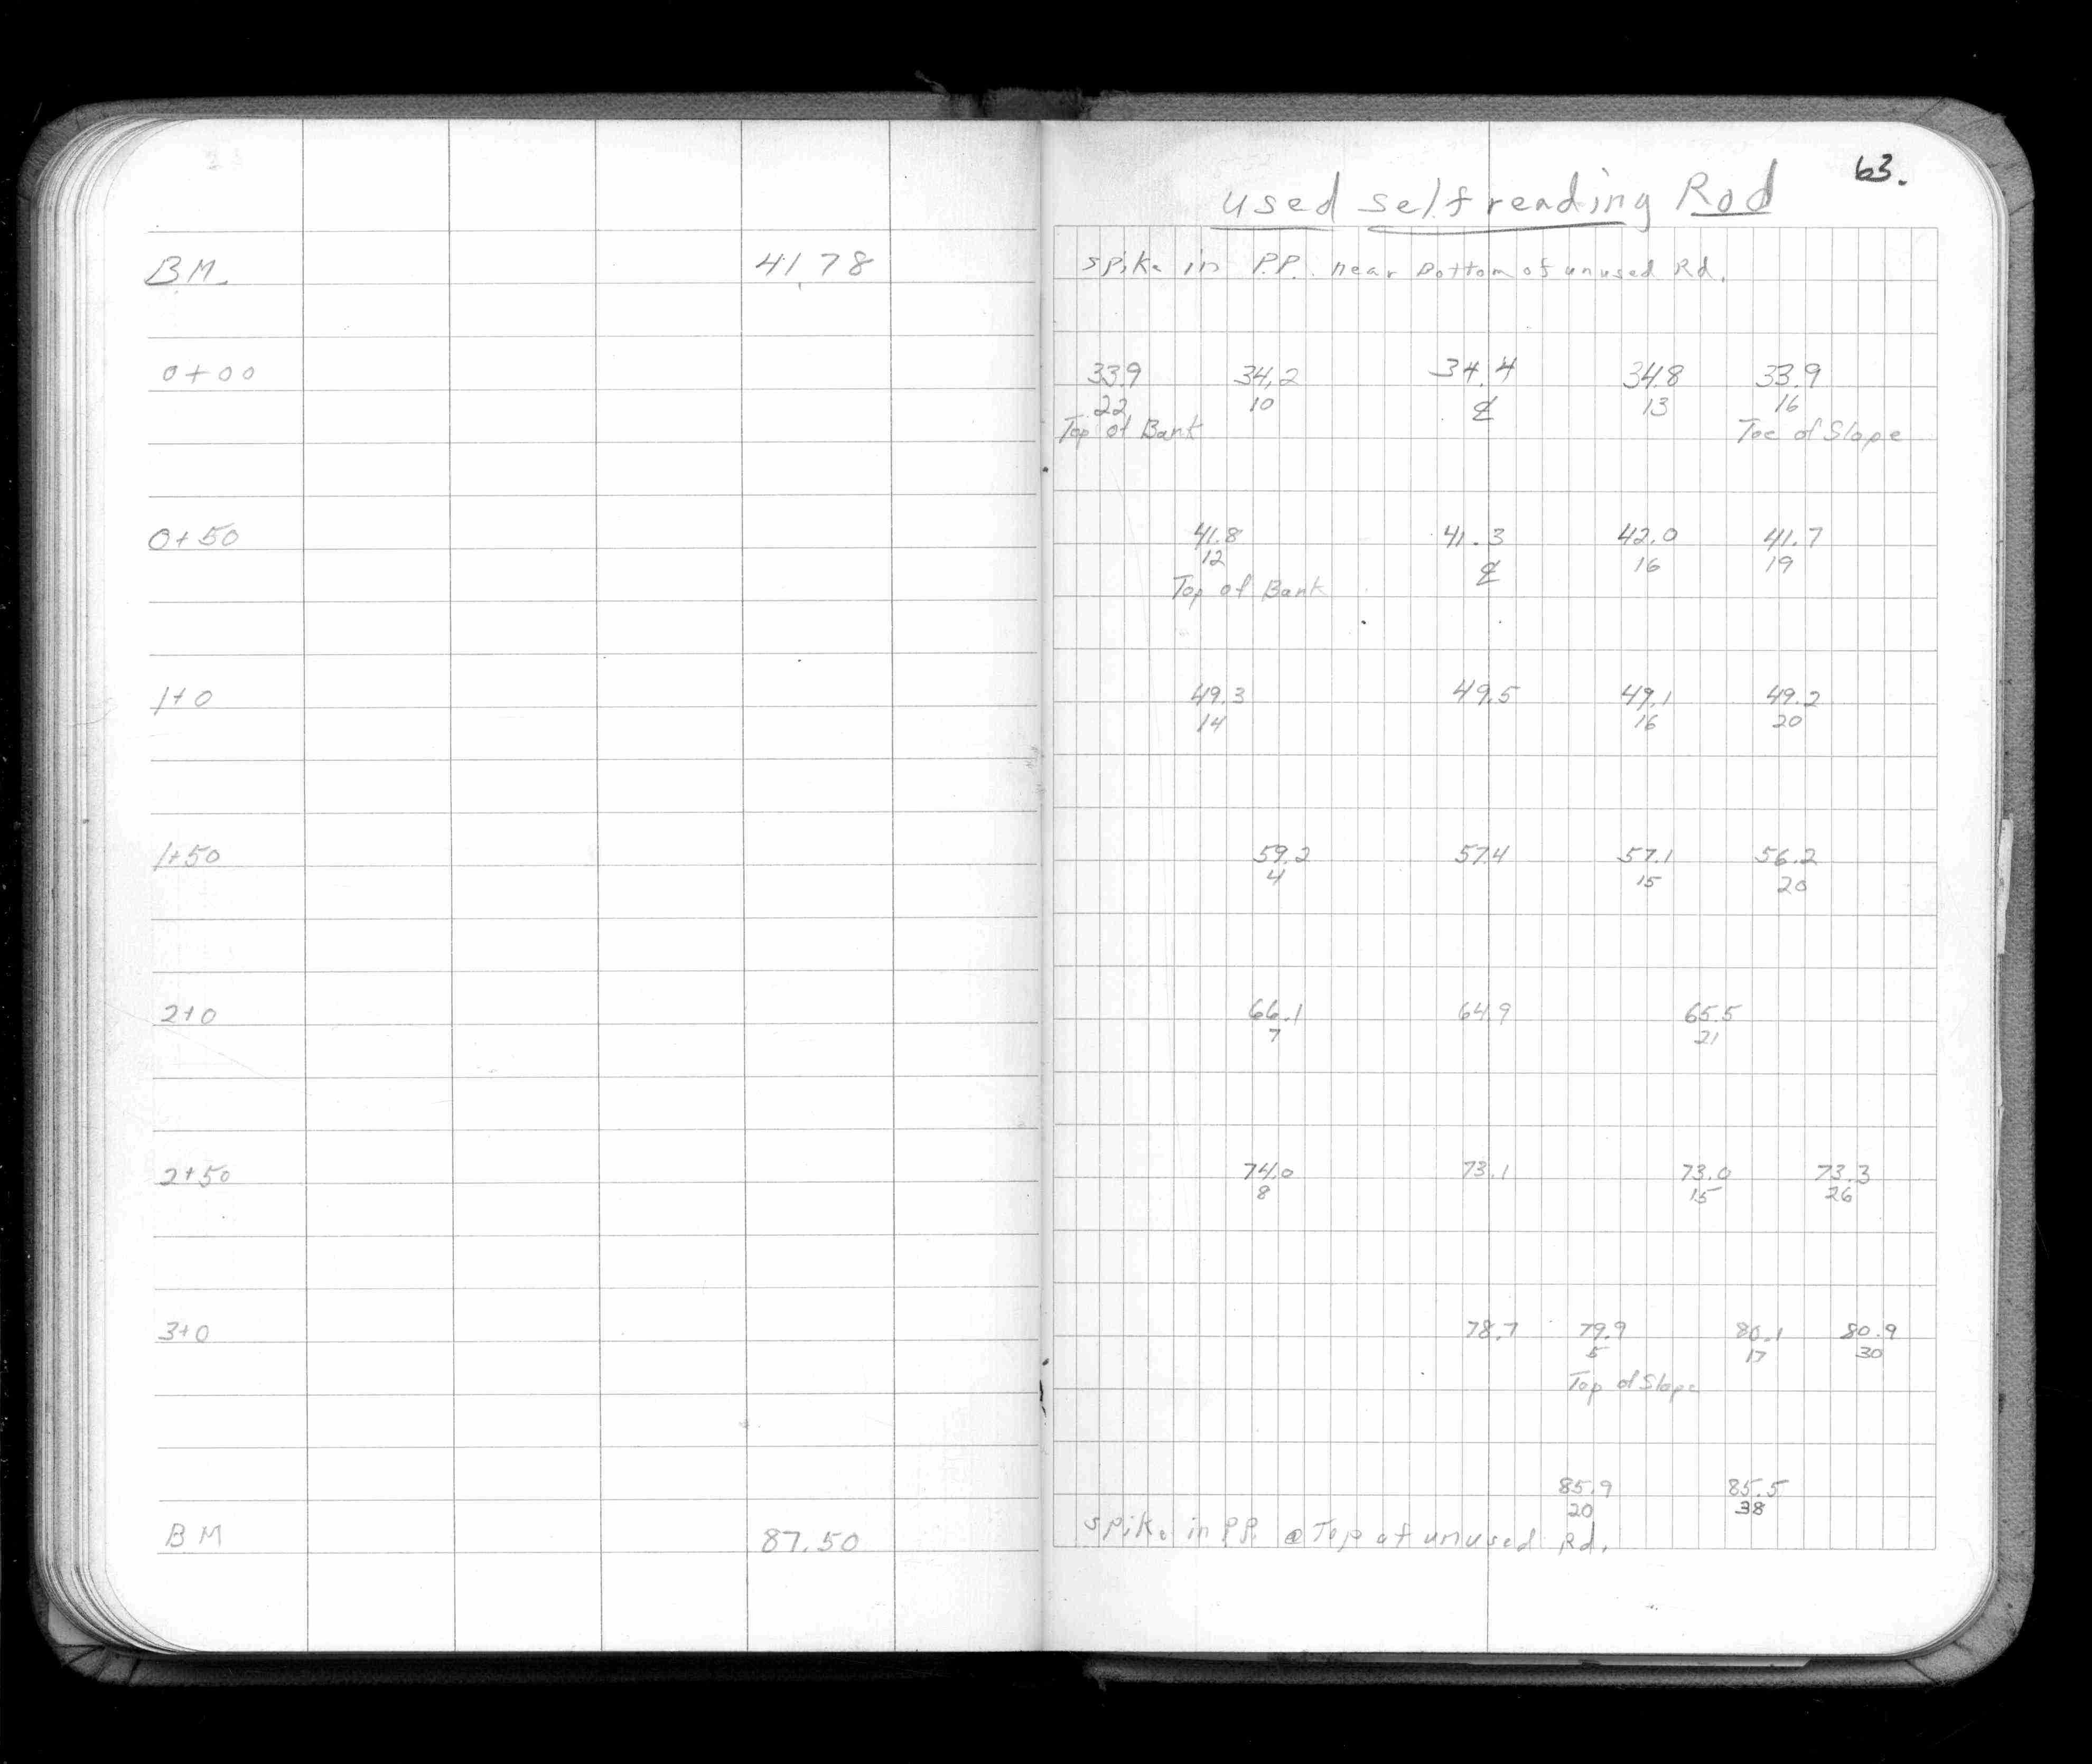 63.
used selfreading Rod
BM 41.78 spike in P.P. near Bottom of unused Rd.
0+00 33.9 34.2 34.4 34.8 33.9
22 10 ℄ 13 16
Top of Bank Toe of Slope
0+50 41.8 41.3 42.0 41.7
12 ℄ 16 19
Top of Bank
1+0 49.3 49.5 49.1 49.2
14 16 20
1+50 59.2 57.4 57.1 56.2
4 15 20
2+0 66.1 64.9 65.5
7 21
2+50 74.0 73.1 73.0 73.3
8 15 26
3+0 78.7 79.9 80.1 80.9
5 17 30
Top of Slope
85.9 85.5
20 38
BM 87.50 spike in P.P. @ Top of unused Rd.